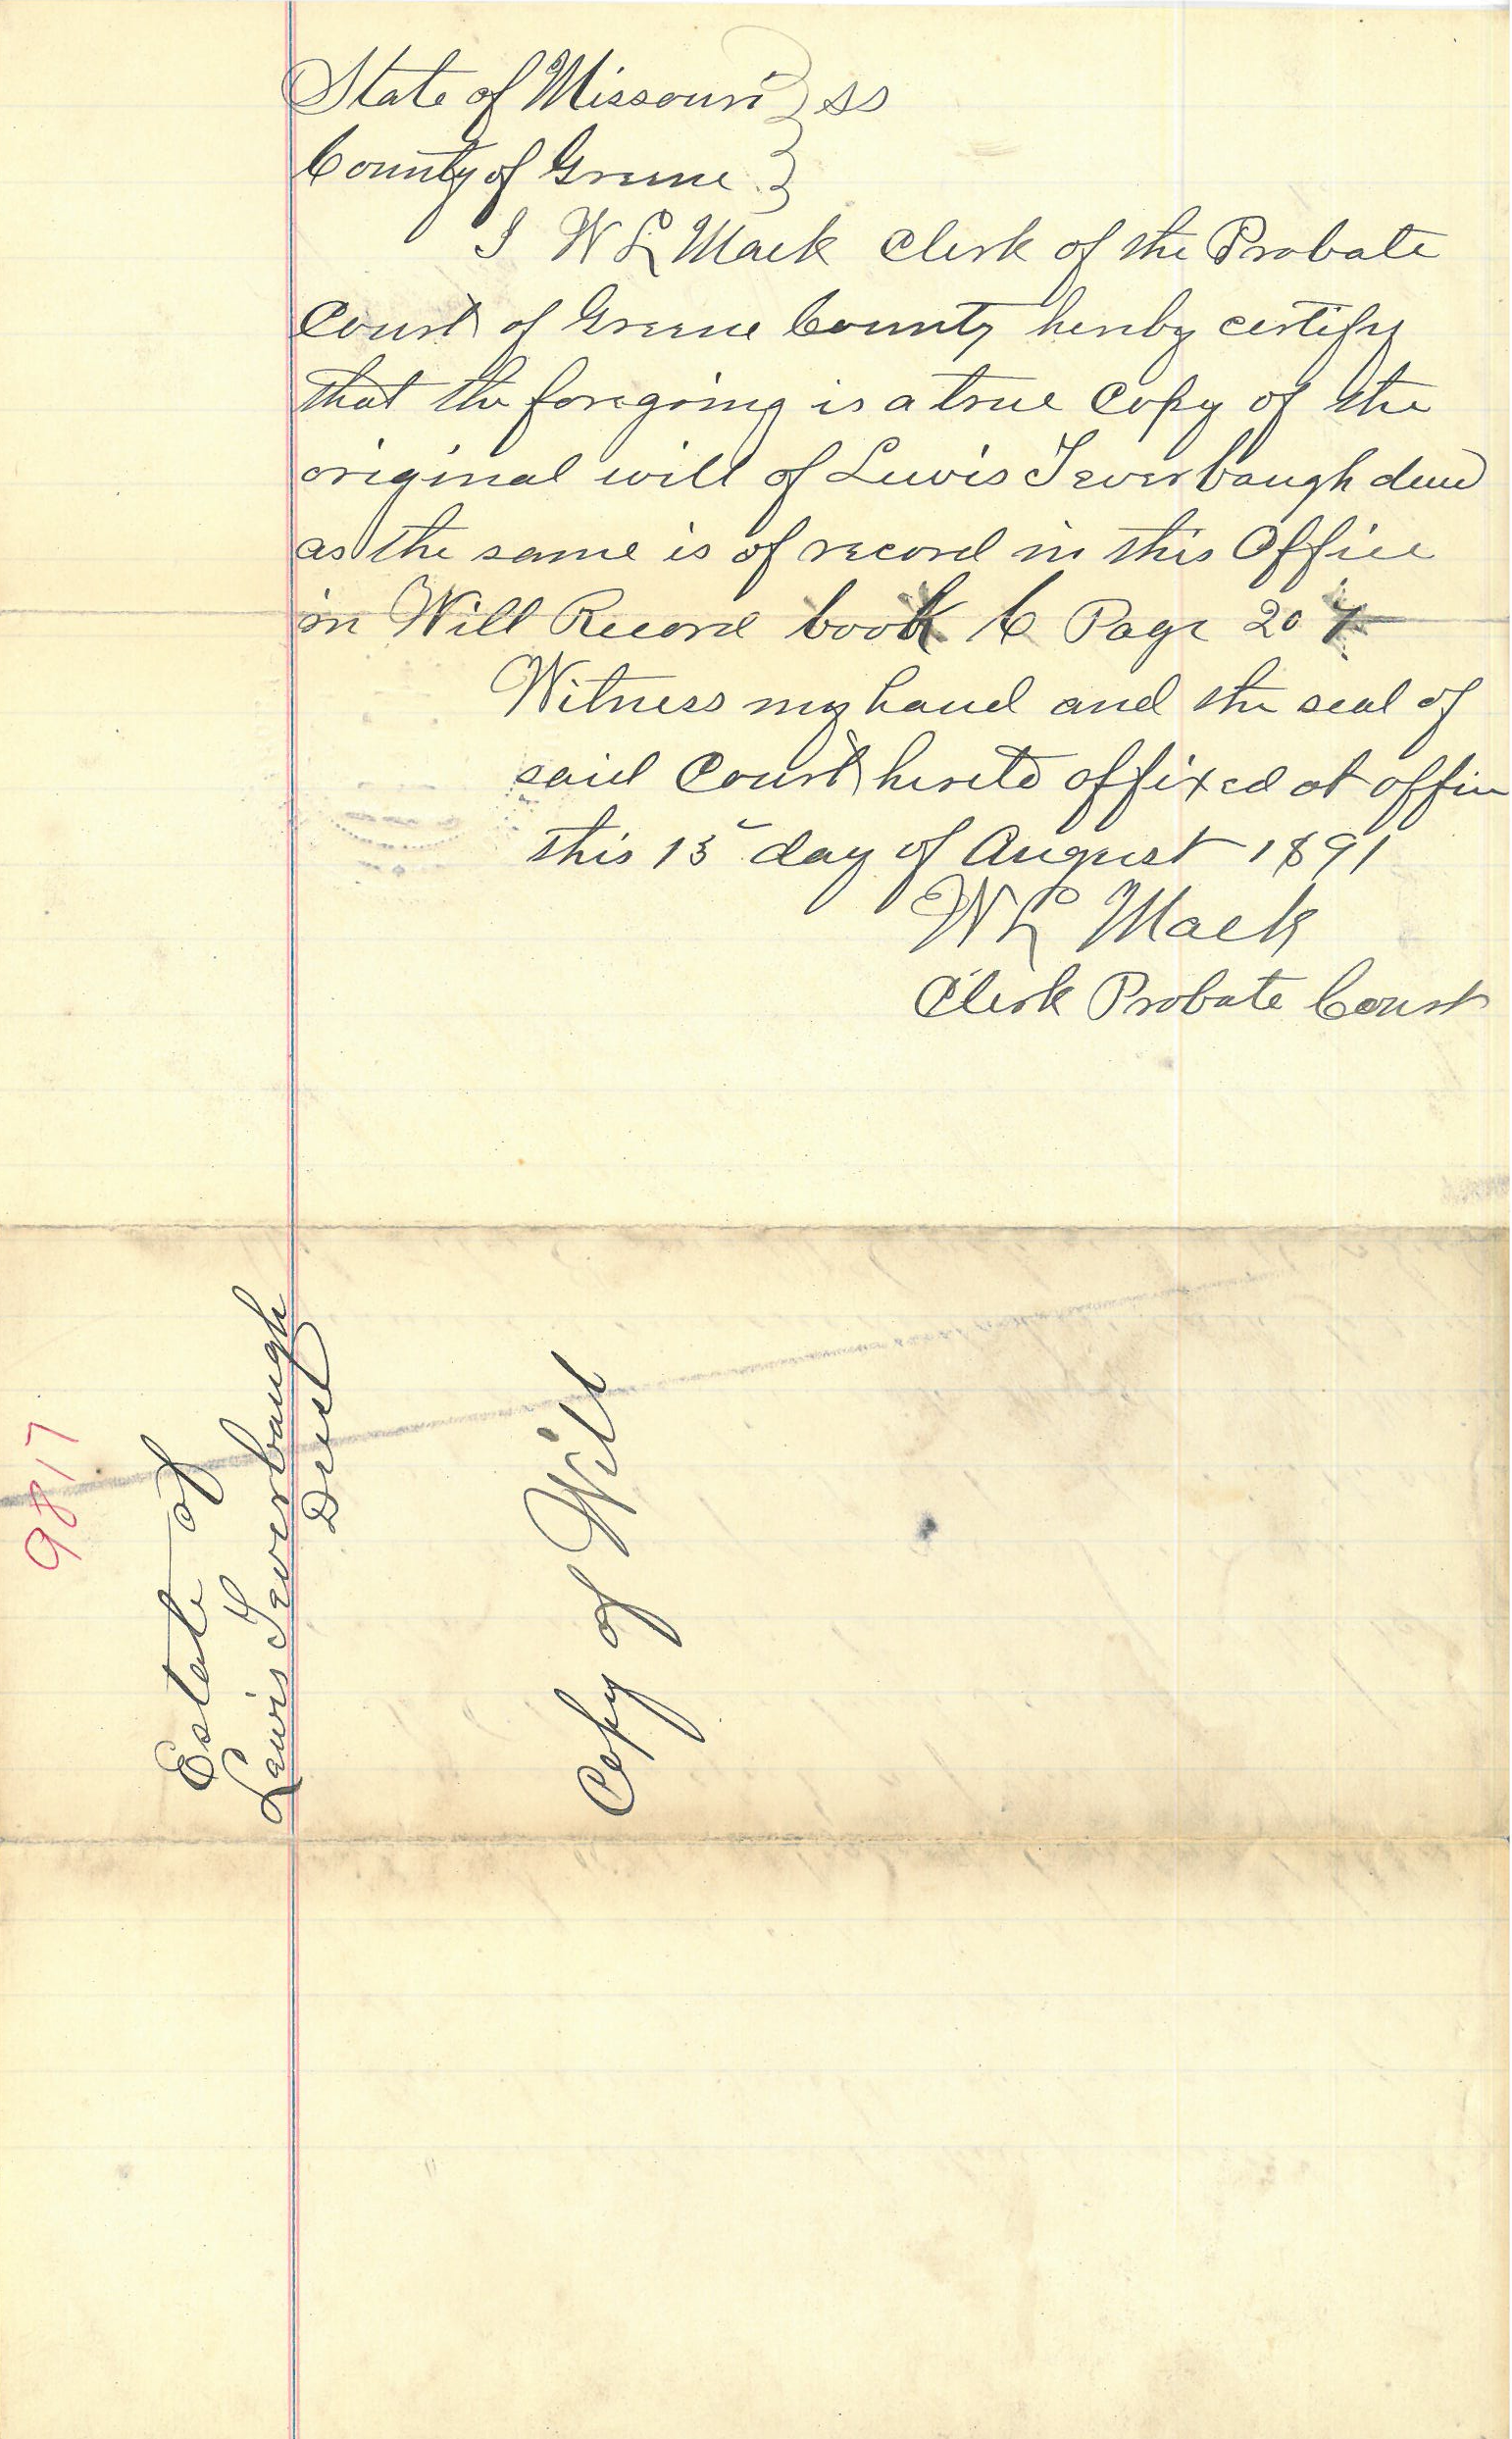 State of Missouri } ss
County of Greene }
I W L Mack Clerk of the Probate
Court of Greene County hereby certify
that the foregoing is a true Copy of the
original will of Lewis Teverbaugh decd
as the same is of record in this Office
in Will Record book C Page 207
Witness my hand and the seal of
said Court hereto affixed at office
this 15 day of August 1891
W L Mack
Clerk Probate Court
9817
Estate of
Lewis Teverbaugh
Decd
Copy of Will